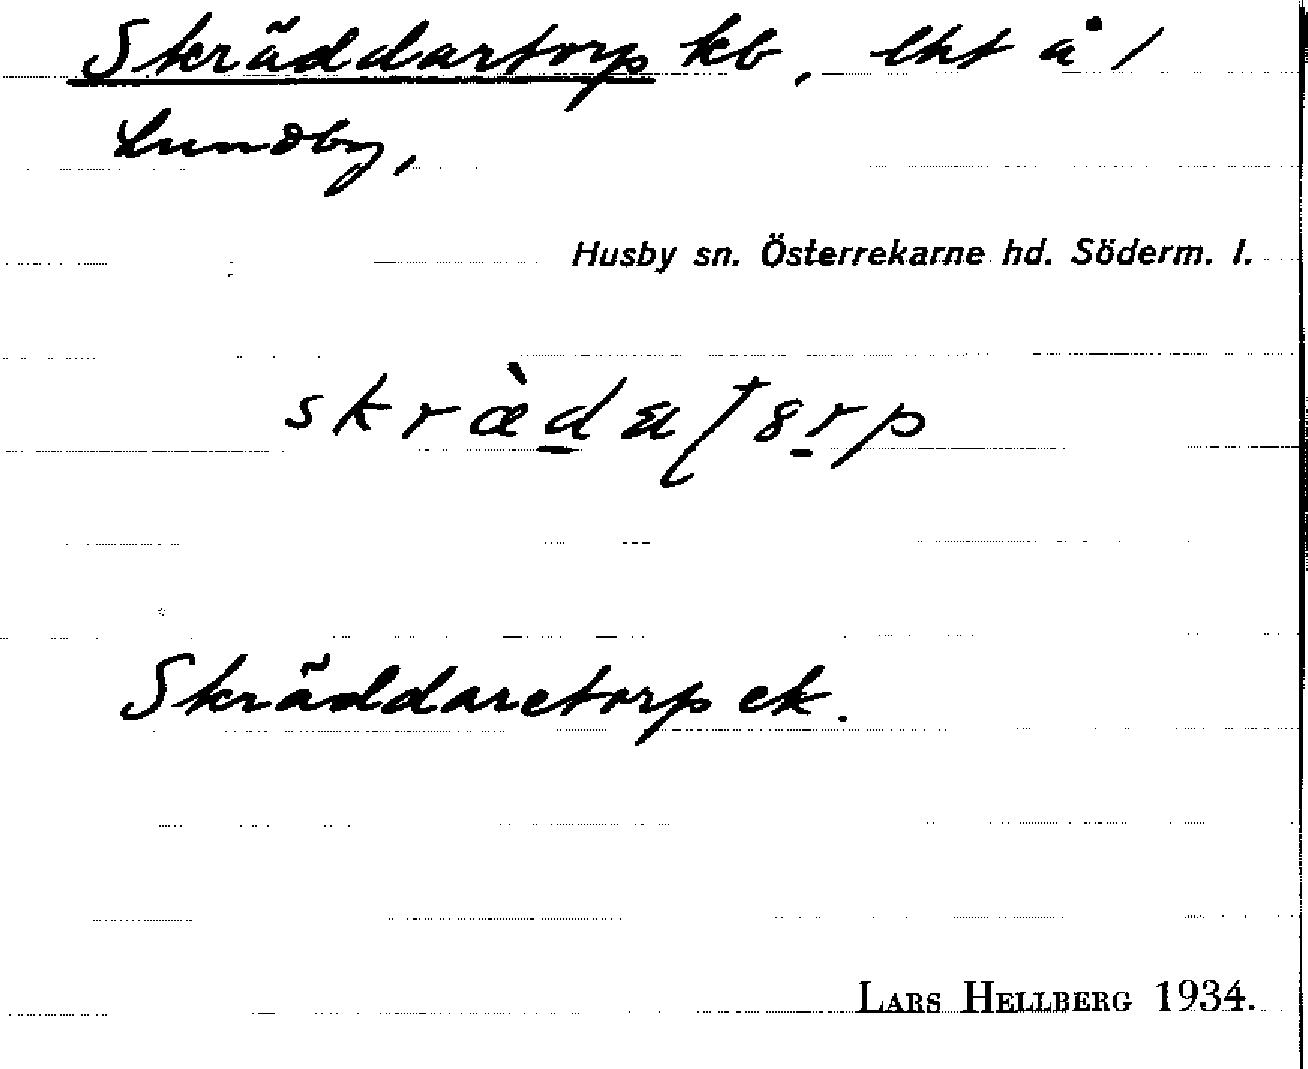 Skräddartorp kb, lht å 1
Lundby,
Husby sn. Österrekarne hd. Söderm. l.
Skräddaretorp ek.
LARS HELLBERG 1934.